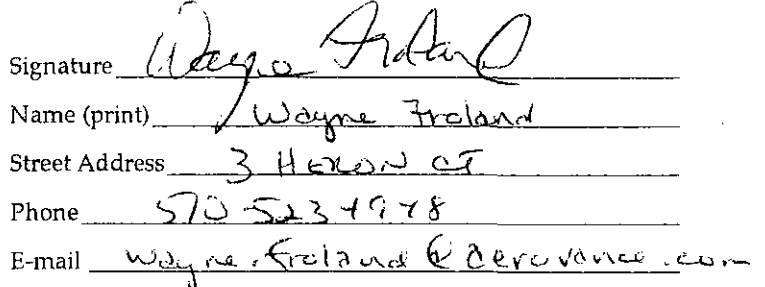 Signature Wayne Froland
Name (print) Wayne Froland
Street Address 3 HERON CT
Phone 570-523-4978
E-mail wayne.froland@aerovance.com